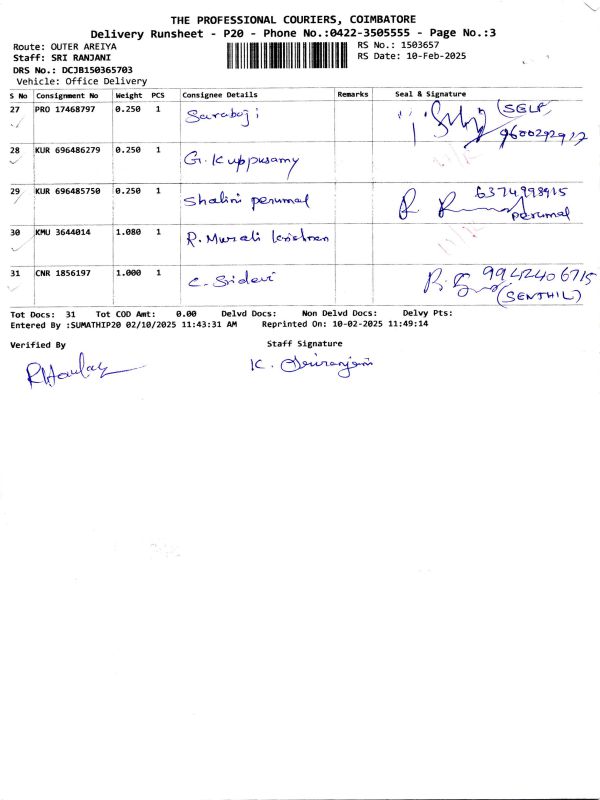 THE PROFESSIONAL COURIERS, COIMBATORE
Delivery Runsheet - P20 - Phone No.:0422-3505555 - Page No.:3
Route: OUTER AREIYA RS No.: 1503657
Staff: SRI RANJANI RS Date: 10-Feb-2025
DRS No.: DCJB150365703
Vehicle: Office Delivery
S No Consignment No Weight PCS Consignee Details Remarks Seal & Signature
27 PRO 17468797 0.250 1 Saraboji (SELF)
9600292917
28 KUR 696486279 0.250 1 G. Kuppusamy
29 KUR 696485750 0.250 1 Shalini perumal 6374998915
perumal
30 KMU 3644014 1.080 1 R. Murali krishnan
31 CNR 1856197 1.000 1 C. Sridevi 9942406715
(SENTHIL)
Tot Docs: 31 Tot COD Amt: 0.00 Delvd Docs: Non Delvd Docs: Delvy Pts:
Entered By :SUMATHIP20 02/10/2025 11:43:31 AM Reprinted On: 10-02-2025 11:49:14
Verified By Staff Signature